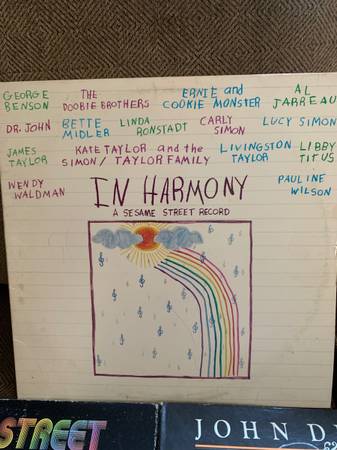 GEORGE BENSON
THE DOOBIE BROTHERS
ERNIE and COOKIE MONSTER
AL JARREAU
DR. JOHN
BETTE MIDLER
LINDA RONSTADT
CARLY SIMON
LUCY SIMON
JAMES TAYLOR
KATE TAYLOR and the SIMON/TAYLOR FAMILY
LIVINGSTON TAYLOR
LIBBY TITUS
WENDY WALDMAN
PAULINE WILSON
IN HARMONY
A SESAME STREET RECORD
STREET
JOHN D